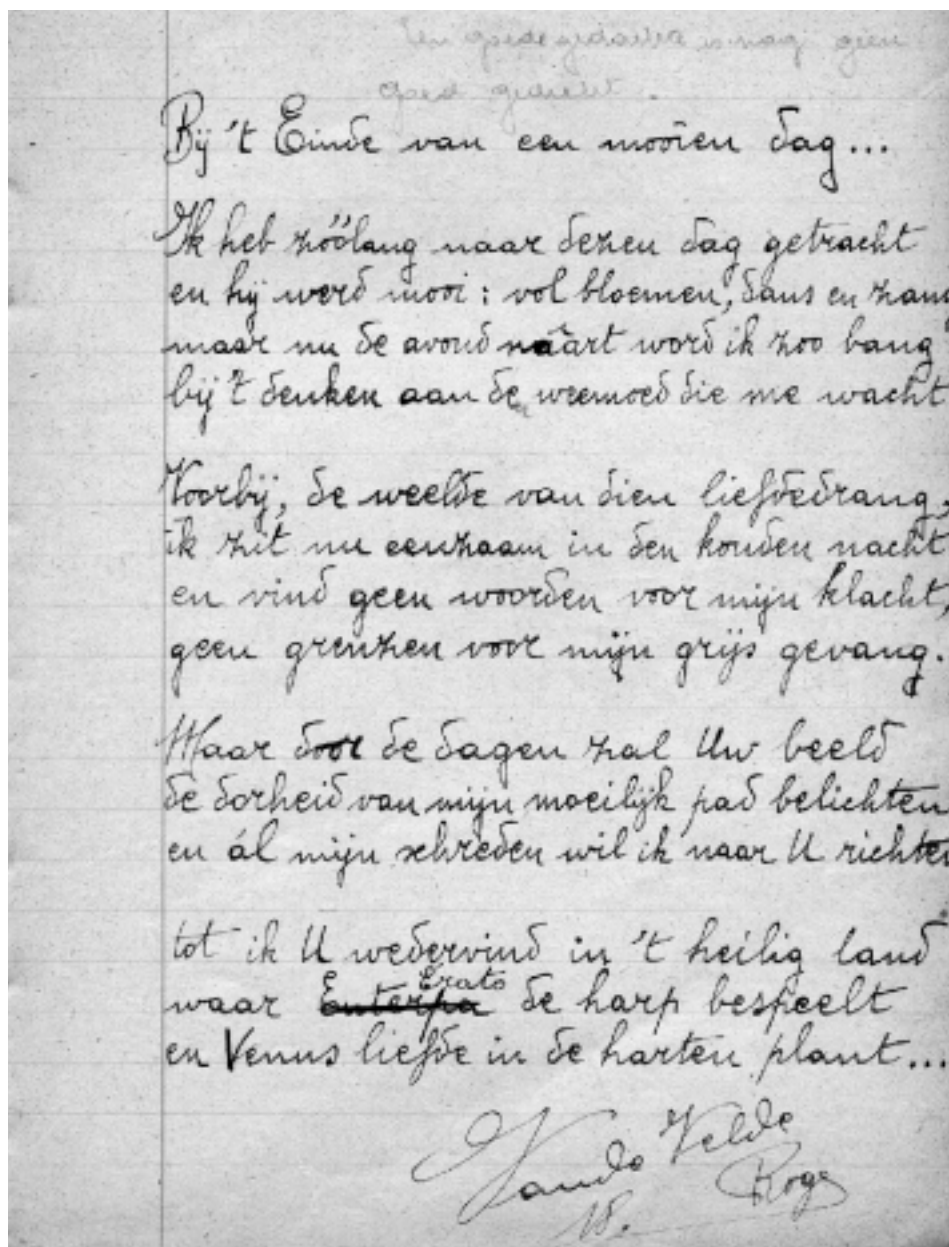 Een goede gedachte is nog geen
goed gedicht.
Bij 't Einde van een mooien dag...
Ik heb zóólang naar dezen dag getracht
en hij werd mooi: vol bloemen, dans en zang
maar nu de avond náárt word ik zoo bang
bij 't denken aan de weemoed die me wacht
Voorbij, de weelde van dien liefdedrang,
ik zit nu eenzaam in den kouden nacht
en vind geen woorden voor mijn klacht,
geen grenzen voor mijn grijs gevang.
Maar door de dagen zal Uw beeld
de dorheid van mijn moeilijk pad belichten
en ál mijn schreden wil ik naar U richten
tot ik U wedervind in 't heilig land
Erato
waar Euterpa de harp bespeelt
en Venus liefde in de harten plant...
Vande Velde
Roger
18.